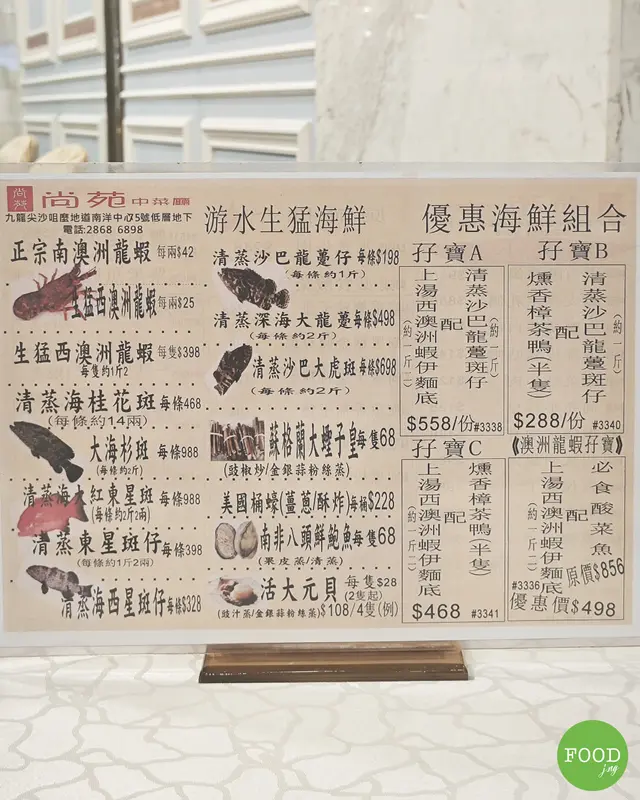 尚苑
尚苑中菜廳
九龍尖沙咀麼地道南洋中心5號低層地下
電話:2868 6898
正宗南澳洲龍蝦 每兩$42
生猛西澳洲龍蝦 每兩$25
生猛西澳洲龍蝦 每隻$398
每隻約1斤2
清蒸海桂花斑 每條468
(每條約14兩)
大海杉斑 每條988
(每條約2斤)
清蒸海水紅東星斑 每條988
(每條約2斤2兩)
清蒸東星斑仔 每條398
(每條約1斤2兩)
清蒸海西星斑仔 每條$328
游水生猛海鮮
清蒸沙巴龍躉仔 每條$198
(每條約1斤)
清蒸深海大龍躉 每條$498
清蒸沙巴大虎斑 每條$698
(每條約2斤)
蘇格蘭大蟶子皇 每隻68
(豉椒炒/金銀蒜粉絲蒸)
美國桶蠔(薑蔥/酥炸) 每桶$228
南非八頭鮮鮑魚 每隻68
(果皮蒸/清蒸)
活大元貝 每隻$28
(2隻起)
(豉汁蒸/金銀蒜粉絲蒸) $108/4隻(例)
優惠海鮮組合
孖寶A
清蒸沙巴龍躉斑仔
(約一斤)
配
上湯西澳洲蝦伊麵底
(約一斤二)
$558/份 #3338
孖寶B
清蒸沙巴龍躉斑仔
(約一斤)
配
燻香樟茶鴨(半隻)
$288/份 #3340
孖寶C
燻香樟茶鴨(半隻)
配
上湯西澳洲蝦伊麵底
(約一斤二)
$468 #3341
《澳洲龍蝦孖寶》
必食酸菜魚
配
上湯西澳洲蝦伊麵底
(約一斤二)
原價$856
#3336
優惠價$498
FOOD
jng